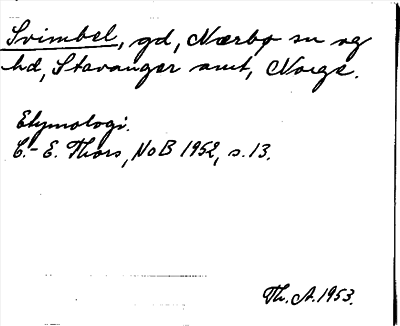 Svimbel, gd, Nærbø sn og
hd, Stavanger amt, Norge.
Etymologi.
C.-E. Thors, NoB 1952, s. 13.
Th. A. 1953.